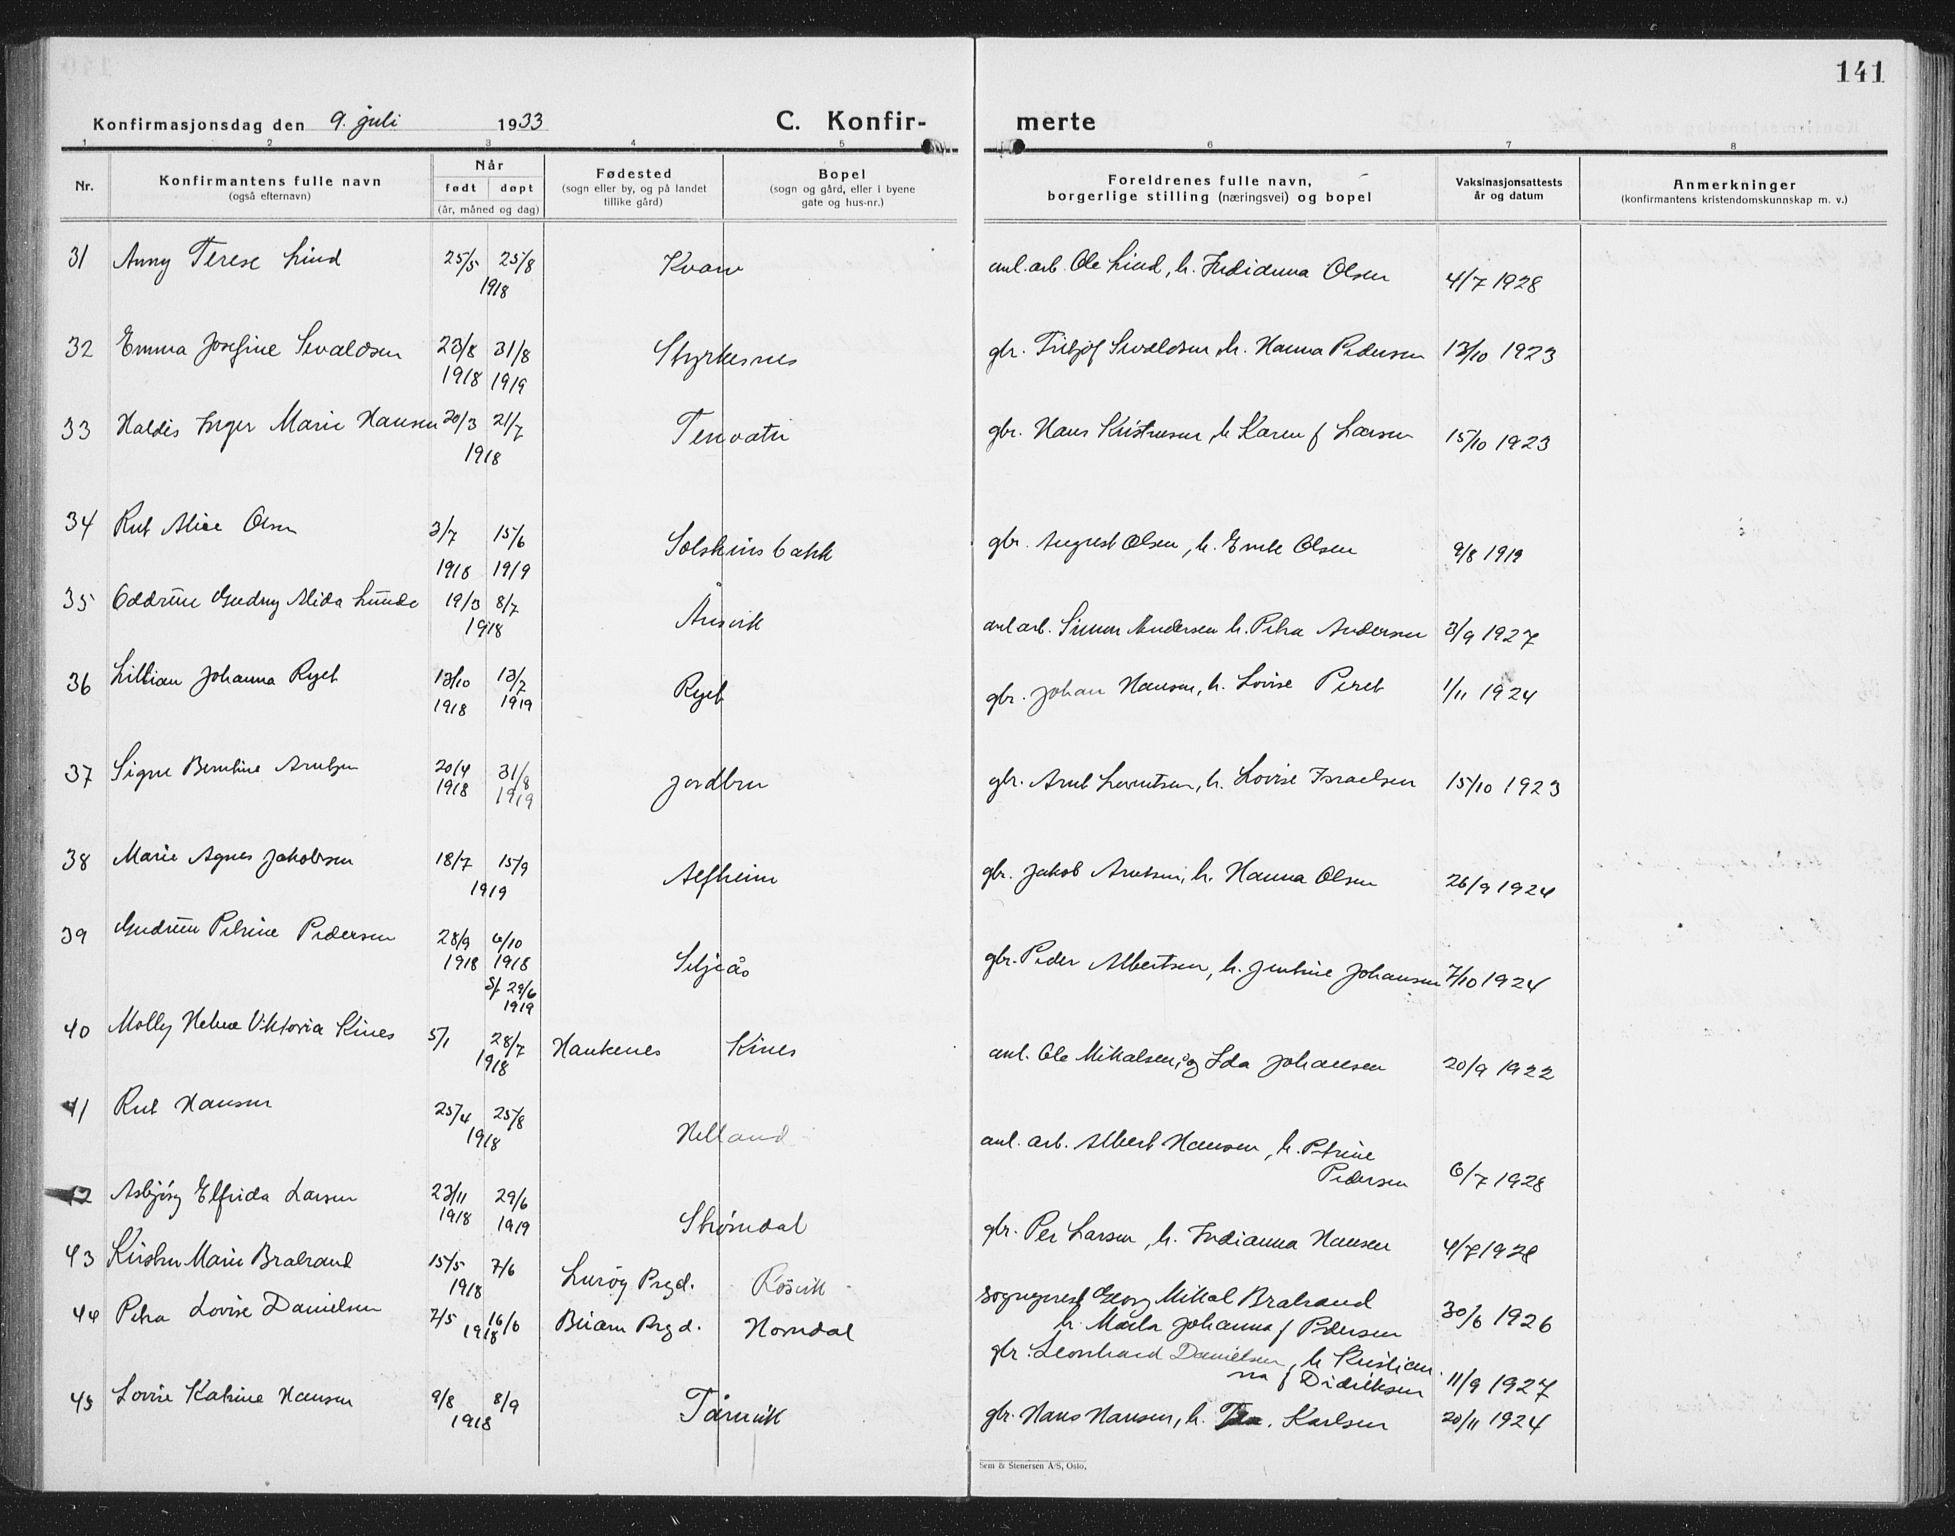 141
Konfirmasjonsdag den 9. juli 1933 C. Konfir- merte
1 2 3 4 5 6 7 8
Nr. Konfirmantens fulle navn (også efternavn) Når født døpt (år, måned og dag) Fødested (sogn eller by, og på landet tillike gård) Bopel (sogn og gård, eller i byene gate og hus-nr.) Foreldrenes fulle navn, borgerlige stilling (næringsvei) og bopel Vaksinasjonsattests år og datum Anmerkninger (konfirmantens kristendomskunnskap m. v.)
31 Anny Terese Lind 25/5 25/8 1918 Kvarv anl. arb. Ole Lind, h. Indianna Olsen 4/7 1928
32 Emma Josefine Sivaldsen 23/8 1918 31/8 1919 Styrkesnes gbr. Sivaldsen, h. Hanna Pedersen 13/10 1923
33 Haldis Inger Marie Hansen 20/3 21/7 1918 Tennvatn gbr. Hans Kristensen, h Karen f Larsen 15/10 1923
34 Rut Alise Olsen 3/7 1918 15/6 1919 Solskinsbakk gbr. August Olsen, h. Olsen 9/8 1919
35 Oddrun Gudny Alida Lunde 19/3 8/7 1918 Ånsvik anl. arb. Simon Andersen h. Petra Andersen 3/9 1927
36 Lillian Johanna Ryet 13/10 1918 13/7 1919 Ryet gbr. Johan Hansen, h. Lovise 1/11 1924
37 Signe Berntine Arntsen 20/4 1918 31/8 1919 Jordbru gbr. Arnt Lorentsen, h. Lovise Israelsen 15/10 1923
38 Marie Agnes Jakobsen 18/7 15/9 1919 Alfheim gbr. Jakob Arntsen, h. Hanna Olsen 26/9 1924
39 Gudrun Petrine Pedersen 28/9 1918 6/10 1918 Siljeås gbr. Peder Albertsen, h. Jentine Johansen 7/10 1924
29/6 1919
40 Molly Helene Viktoria Kines 5/1 28/7 1918 Haukenes Kines anl. Ole Mikalsen, og Ida Johansen 20/9 1922
41 Rut Hansen 25/4 25/8 1918 Helland anl. arb. Albert Hansen, h. Petrine
Pedersen 6/7 1928
42 Asbjörg Elfrida Larsen 23/11 1918 29/6 1919 Strömdal gbr. Per Larsen, h. Indianna Hansen 4/7 1928
43 Kirsten Marie Bratrand 15/5 7/6 1918 Luröy Prgd. Rösvik sogneprest Georg Mikal Bratrand
h. Johanna f Pedersen 30/6 1926
44 Petra Lovise Danielsen 7/5 16/6 1918 Beiarn Prgd. Horndal gbr. Leonhard Danielsen, h Kristian-
na f Didriksen 11/9 1927
45 Lovise Katrine Hansen 9/8 8/9 1918 Tårnvik gbr. Hans Hansen, h. Karlsen 20/11 1924
Sem & Stenersen A/S, Oslo.